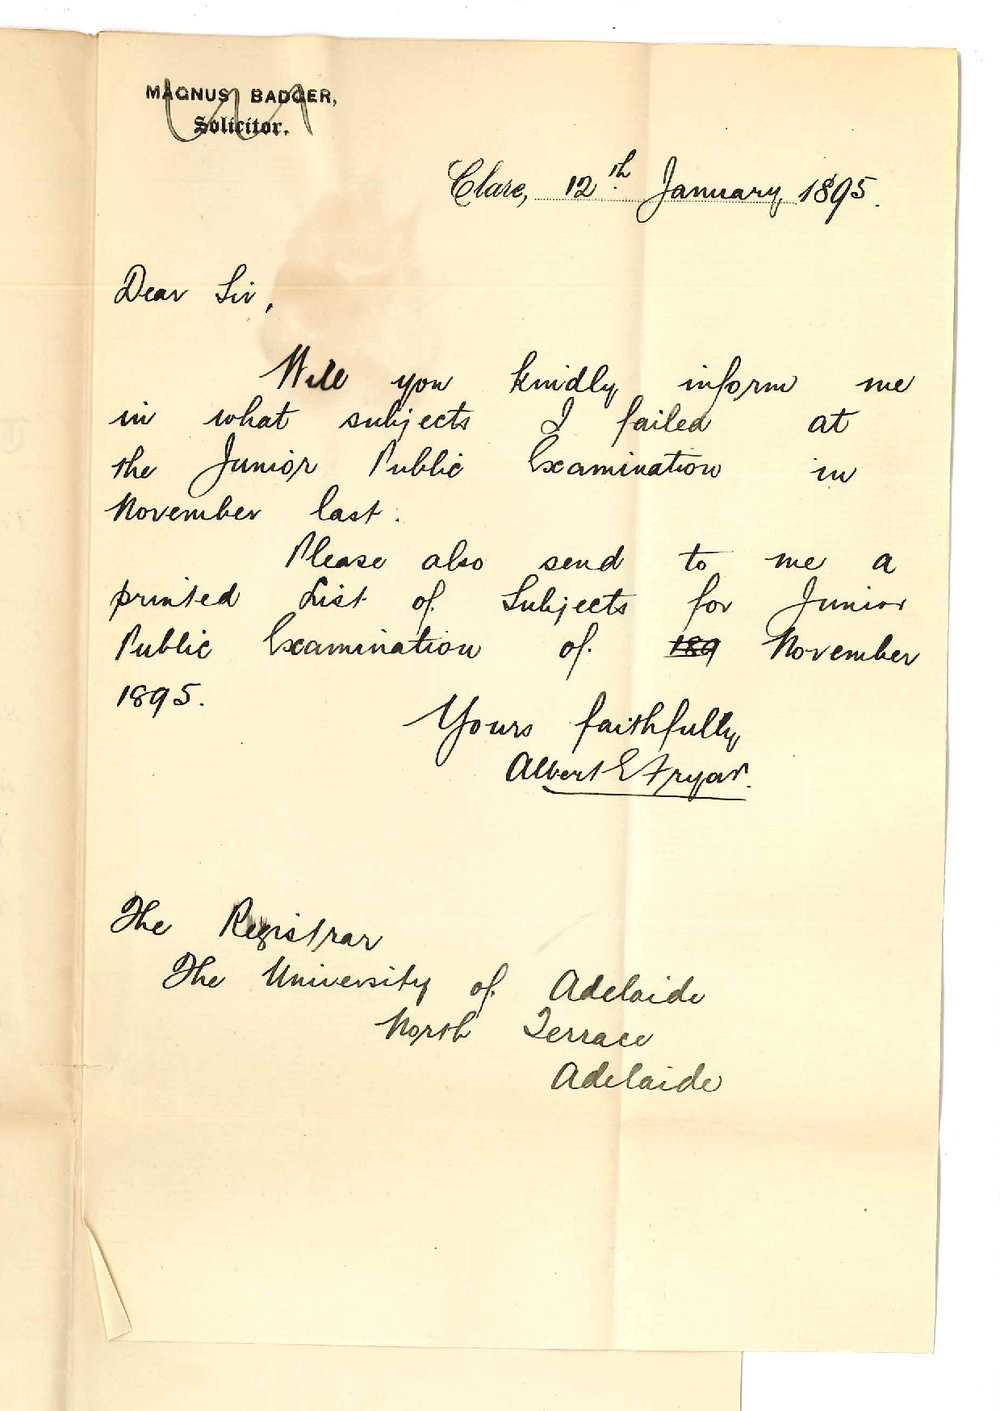 MAGNUS BADGER,
Solicitor.
Clare, 12th January 1895.
Dear Sir,
Will you kindly inform me
in what subjects I failed at
the Junior Public Examination in
November last.
Please also send to me a
printed List of Subjects for Junior
Public Examination of 189 November
1895.
Yours faithfully
Albert E Fryar.
The Registrar
The University of Adelaide
North Terrace
Adelaide